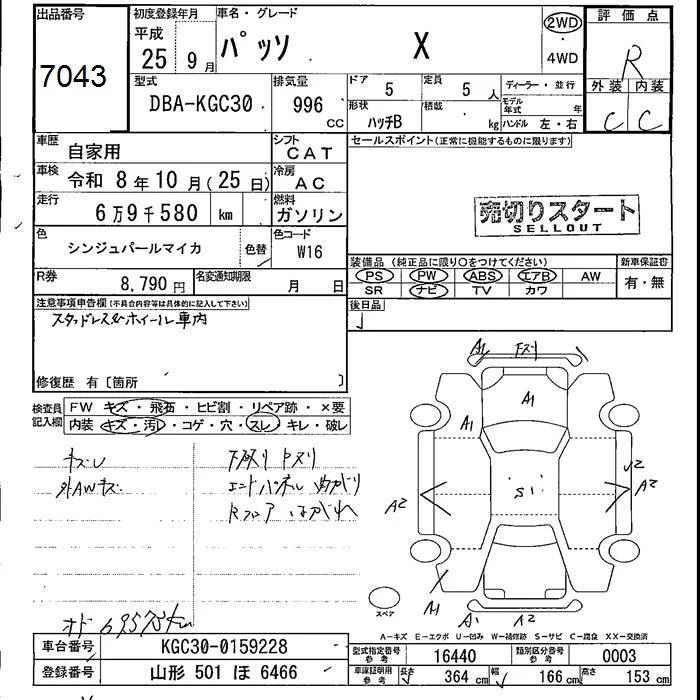 出品番号
7043
初度登録年月
平成
25 9月
車名・グレード
パッソ X
2WD
・
4WD
評価点
R
外装 内装
C C
型式
DBA-KGC30
排気量
996
cc
ドア
5
定員
5人
形状
ハッチB
積載
kg
ディーラー・並行
モデル
年式 年
ハンドル 左・右
車歴
自家用
シフト
CAT
車検
令和 8年10月(25日)
冷房
AC
走行
6万9千580 km
燃料
ガソリン
色
シンジュパールマイカ
色替
色コード
W16
R券
8,790円
名変通知期限
月 日
セールスポイント(正常に機能するものに限ります)
売切りスタート
SELLOUT
装備品(純正品に限り○をつけてください)
PS PW ABS エアB AW
SR ナビ TV カワ
新車保証書
有・無
後日品
注意事項申告欄(不具合内容等は具体的に記入して下さい)
スタッドレス&ホイール車内
修復歴 有〔箇所 〕
検査員
記入欄
FW キズ・飛石・ヒビ割・リペア跡・×要
内装 キズ・汚・コゲ・穴・スレ・キレ・破レ
キズレ
外AWキズ
下スリ
エンドパネル 曲がり
Rフロア はがれ
オド 69575km
A1 下スリ
A1
A1
S1
A2
A2
A2
A1
A1
A2
スペア
A−キズ E−エクボ U−凹み W−補修跡 S−サビ C−腐食 XX−交換済
車台番号
KGC30-0159228
登録番号
山形 501 ほ 6466
型式指定番号
参考
16440
類別区分番号
参考
0003
車庫証明用
参考
長さ 364cm 幅 166cm 高さ 153cm